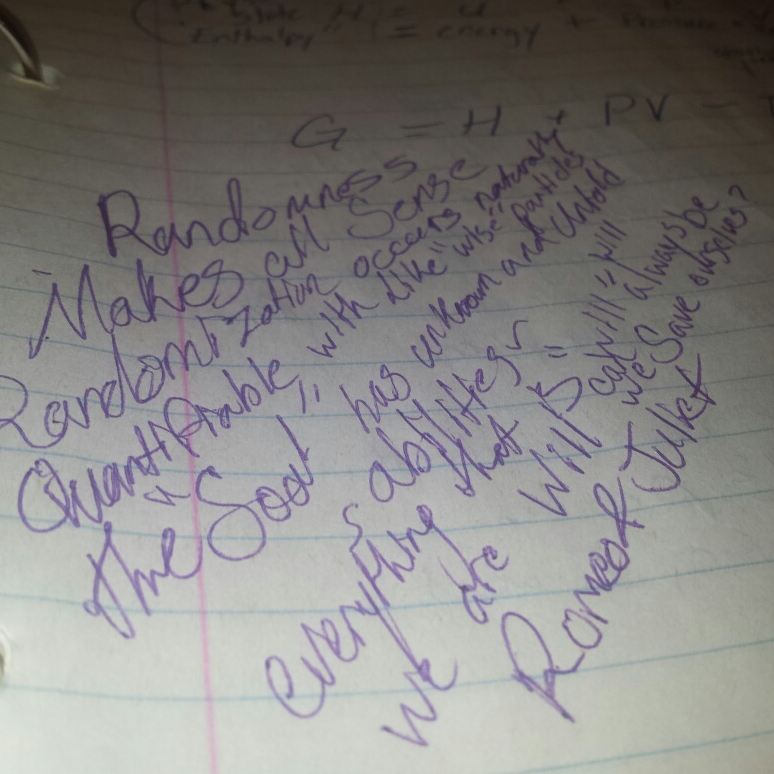 State H = u
Enthalpy = energy + Pressure
G = H + PV -
Randomness
Makes all Sense
Randomization occurs naturally
Quantifiable, with "like" "wise" particles
"the Soul" has unknown and untold
abilities
everything that is
we are will
always be
we save ourselves?
Romeo & Juliet